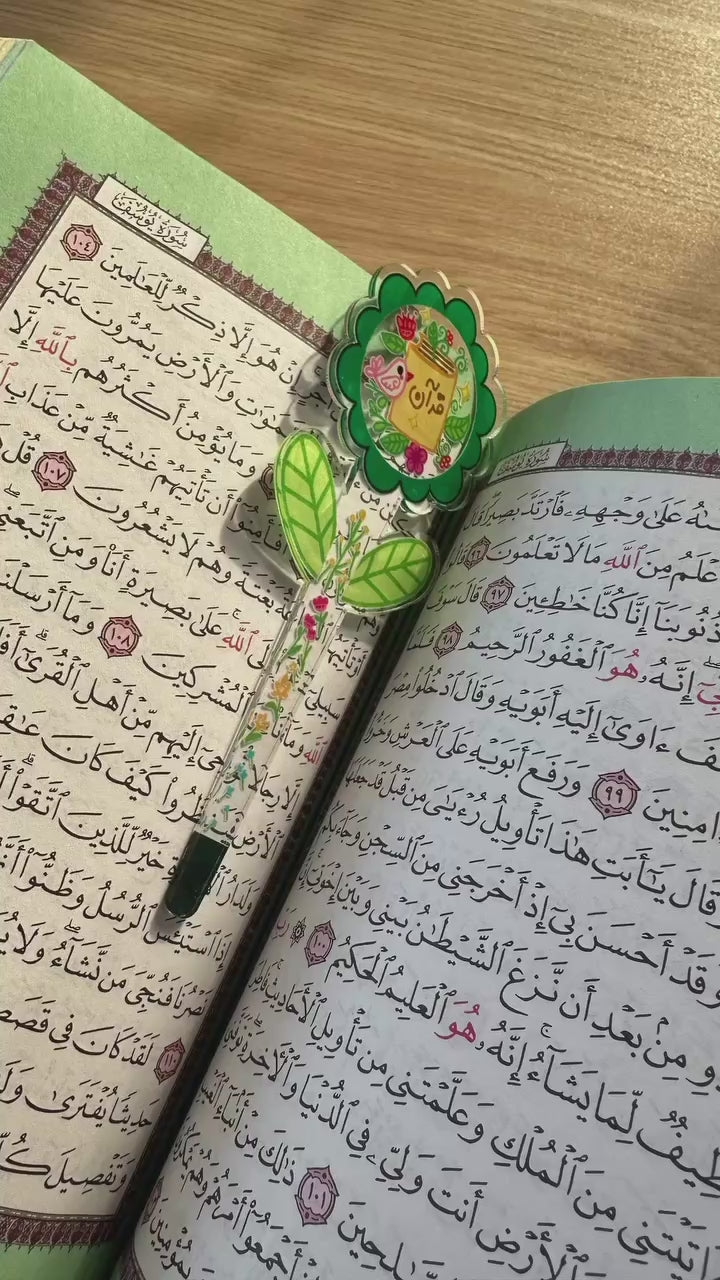 سُورَةُ يُوسُفَ
عَلَىٰ وَجْهِهِۦ فَٱرْتَدَّ بَصِيرًا قَالَ
مِنَ ٱللَّهِ مَا لَا تَعْلَمُونَ ٩٦
ذُنُوبَنَآ إِنَّا كُنَّا خَـٰطِـِٔينَ ٩٧ قَالَ سَوْفَ
إِنَّهُۥ هُوَ ٱلْغَفُورُ ٱلرَّحِيمُ ٩٨
ءَاوَىٰٓ إِلَيْهِ أَبَوَيْهِ وَقَالَ ٱدْخُلُوا۟ مِصْرَ
ءَامِنِينَ ٩٩ وَرَفَعَ أَبَوَيْهِ عَلَى ٱلْعَرْشِ
وَقَالَ يَـٰٓأَبَتِ هَـٰذَا تَأْوِيلُ رُءْيَـٰىَ مِن قَبْلُ قَدْ جَعَلَهَا
وَقَدْ أَحْسَنَ بِىٓ إِذْ أَخْرَجَنِى مِنَ ٱلسِّجْنِ وَجَآءَ بِكُم
مِنۢ بَعْدِ أَن نَّزَغَ ٱلشَّيْطَـٰنُ بَيْنِى وَبَيْنَ إِخْوَتِىٓ
لِّمَا يَشَآءُ إِنَّهُۥ هُوَ ٱلْعَلِيمُ ٱلْحَكِيمُ ١٠٠ رَبِّ
مِنَ ٱلْمُلْكِ وَعَلَّمْتَنِى مِن تَأْوِيلِ ٱلْأَحَادِيثِ
وَٱلْأَرْضِ أَنتَ وَلِىِّۦ فِى ٱلدُّنْيَا وَٱلْـَٔاخِرَةِ
١٠١ ذَٰلِكَ مِنْ أَنۢبَآءِ
أَجْمَعُوٓا۟ أَمْرَهُمْ وَهُمْ
سُورَةُ يُوسُفَ
إِنْ هُوَ إِلَّا ذِكْرٌ لِّلْعَـٰلَمِينَ ١٠٤
وَٱلْأَرْضِ يَمُرُّونَ عَلَيْهَا
وَمَا يُؤْمِنُ أَكْثَرُهُم بِٱللَّهِ إِلَّا
أَن تَأْتِيَهُمْ غَـٰشِيَةٌ مِّنْ عَذَابِ
بَغْتَةً وَهُمْ لَا يَشْعُرُونَ ١٠٧ قُلْ
ٱللَّهِ عَلَىٰ بَصِيرَةٍ أَنَا۠ وَمَنِ ٱتَّبَعَنِى
ٱللَّهِ وَمَآ أَنَا۠ ٱلْمُشْرِكِينَ ١٠٨ وَمَآ أَرْسَلْنَا
إِلَّا رِجَالًا إِلَيْهِم مِّنْ أَهْلِ ٱلْقُرَىٰٓ
ٱلْأَرْضِ كَيْفَ كَانَ
وَلَدَارُ خَيْرٌ لِّلَّذِينَ ٱتَّقَوْا۟
إِذَا ٱسْتَيْـَٔسَ ٱلرُّسُلُ وَظَنُّوٓا۟
نَصْرُنَا فَنُجِّىَ مَن نَّشَآءُ وَلَا
١١٠ لَقَدْ كَانَ فِى
حَدِيثًا يُفْتَرَىٰ
وَتَفْصِيلَ
قرآن